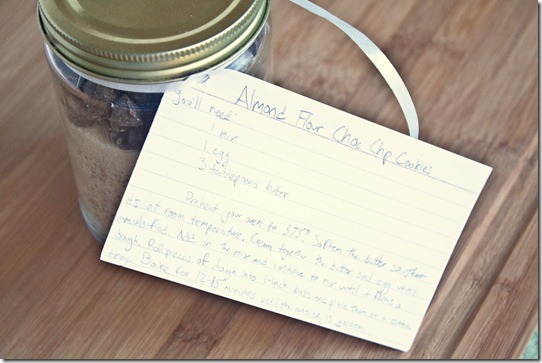 Almond Flour Choc Chp Cookies
You'll need:
1 mix
1 egg
3 tabespoons butter
Preheat your oven to 375° Soften the butter so that
it's at room temperature. Cream together the butter and egg until
emulsified. Add in the mix and continue to mix until it forms a
dough. Roll pieces of dough into 1-inch balls and place them on a
tray. Bake for 12-15 minutes until the outside is